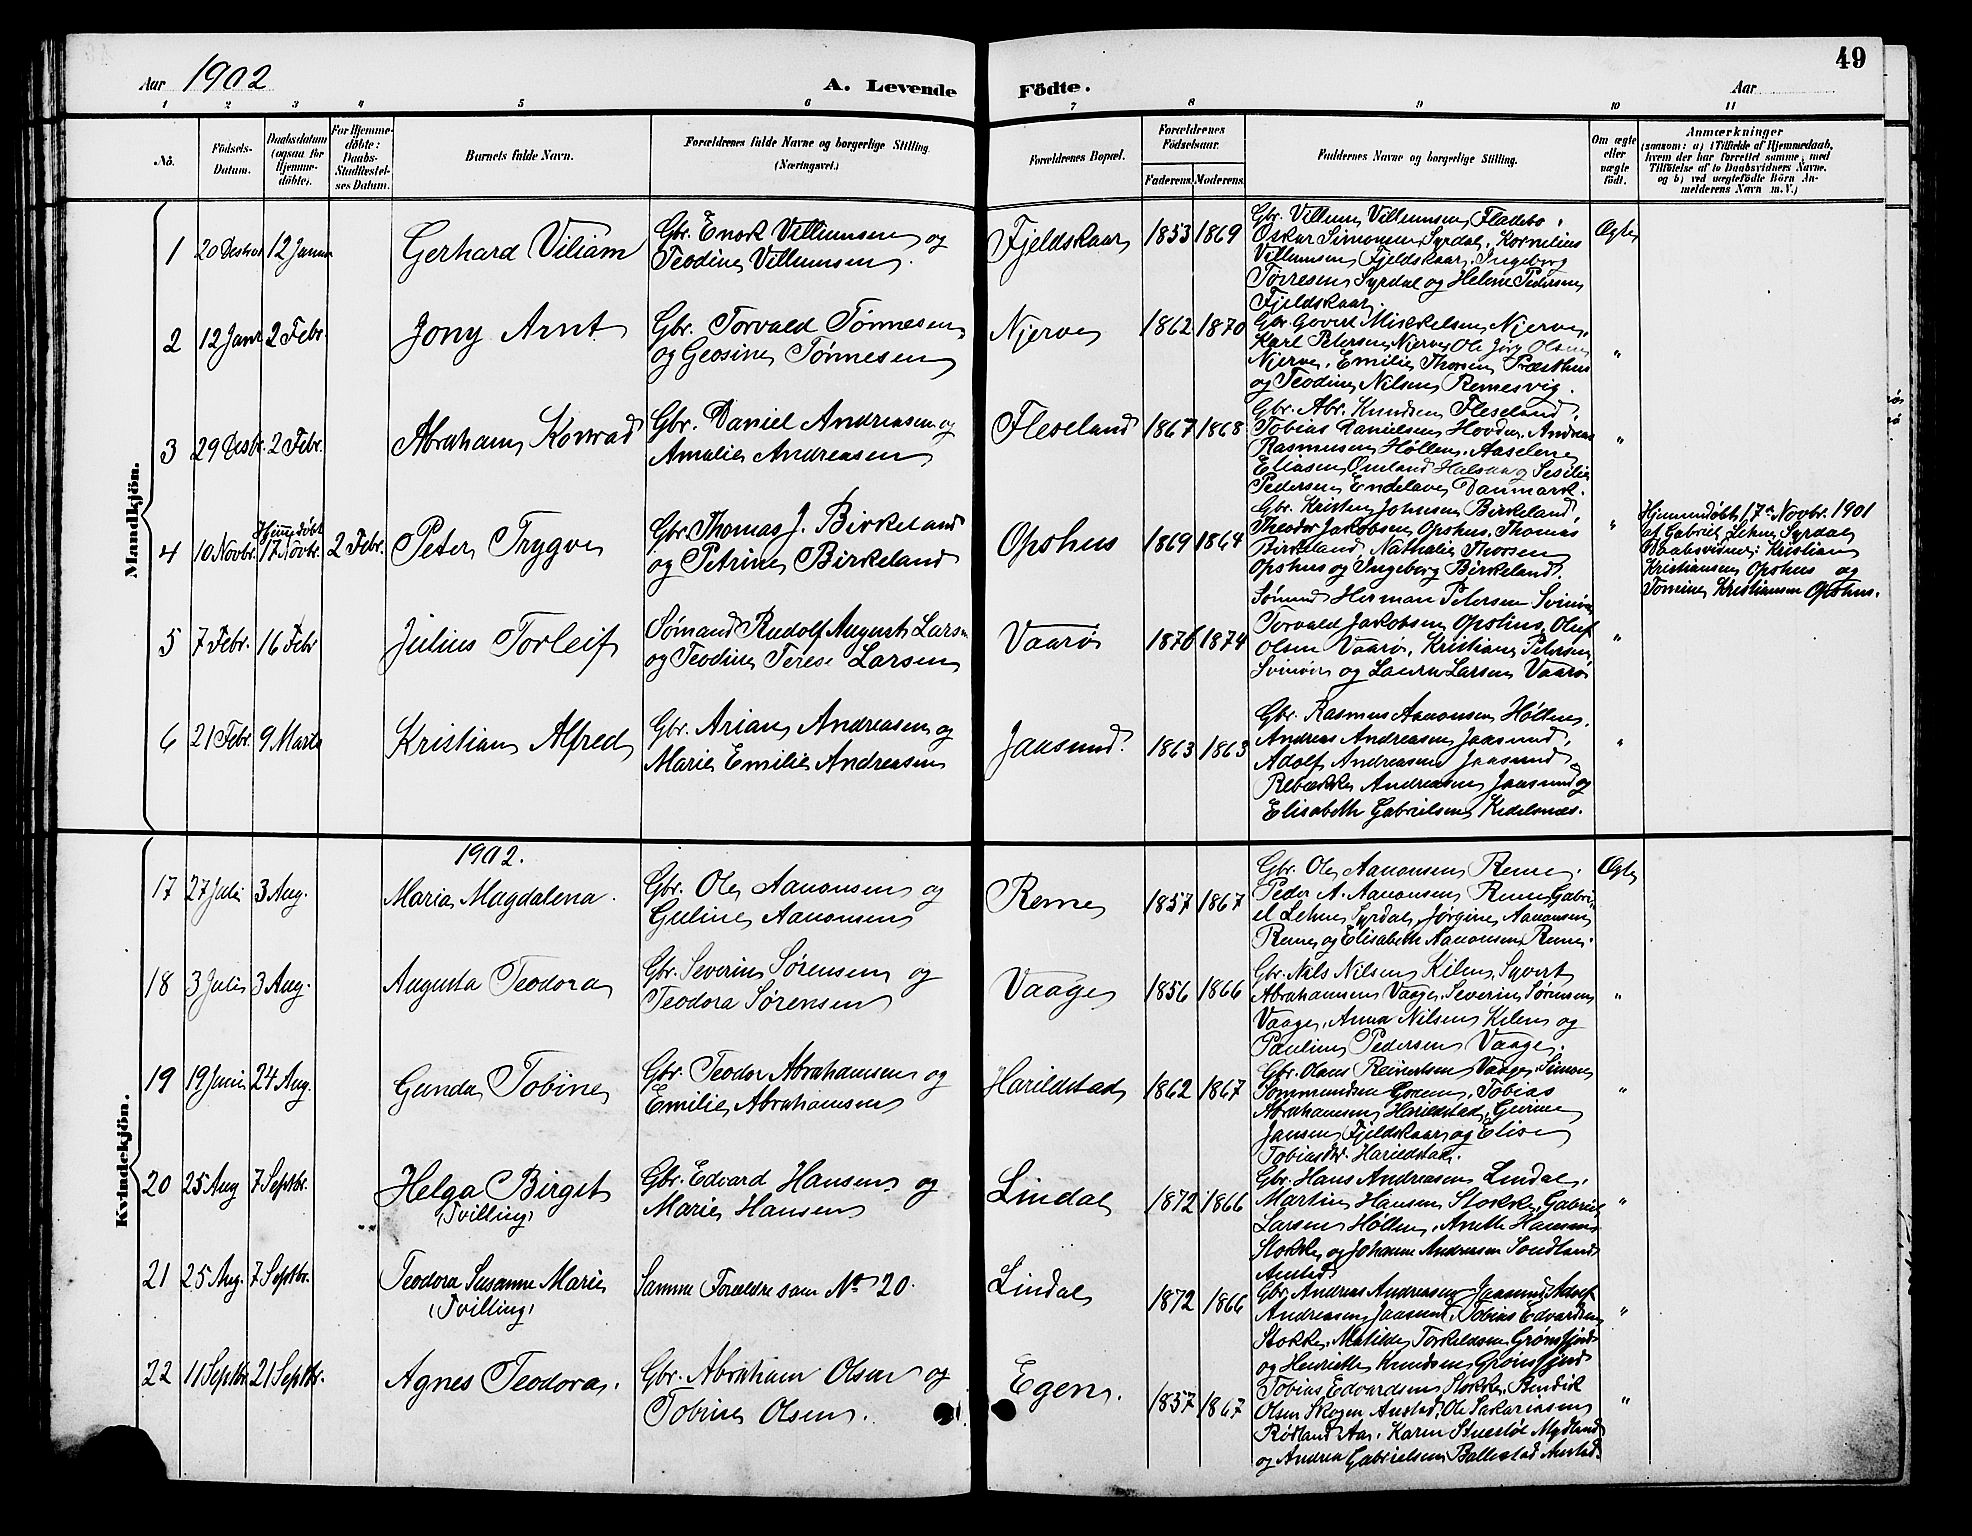 49
Aar 1902 A. Levende Födte. Aar
1 2 3 4 5 6 7 8 9 10 11
No. Födsels-Datum. Daabsdatum (ogsaa for Hjemme-döbte). For Hjemme-döbte: Daabs-Stadfæstel-ses Datum. Barnets fulde Navn. Forældrenes fulde Navne og borgerlige Stilling (Næringsvei.) Forældrenes Bopæl. Forældrenes Födselsaar. Faderens. Moderens. Faddernes Navne og borgerlige Stilling. Om ægte eller uægte födt. Anmærkninger (saasom: a) i Tilfælde af Hjemmedaab, hvem der har forrettet samme, med Tilföielse af to Daabsvidners Navne, og b) ved uægtefödte Börn Anmelderens Navn m. V.)
Mandkjön.
1 20 12 Januar Gerhard Viliam Gbr. Enok Villumsen og Teodine Villumsen. Fjeldskaar 1853 1869 Ægte
Gbr. Villum Villumsen, Fladebo,
Oskar Simonsen Syrdal, Kornelius
Villumsen Fjeldskaar, Ingeborg
Tørresen Syrdal og Helene Pedersen
Fjeldskaar.
2 12 Janr 2 Febr. Jony Arnt Gbr. Torvald Tønnesen og Geosine Tønnesen Njerve 1862 1870 "
Gbr. Govert Mikkelsen Njerve,
Karl Petersen Njerve Ole Jørg Olsen
Njerve, Emilie Thorsen Præsthus
og Teodine Nilsen Remesvig.
3 29 Desbr. 2 Febr. Abraham Konrad Gbr. Daniel Andreasen og Amalie Andreasen Fleseland 1867 1868 "
Gbr. Abr. Knudsen Fleseland,
Tobias Danielsen Hovden, Andreas
Rasmussen Høllen, Aaselene
Eliasen Omland Halsaa og Sesilie
Pedersen Endelave Danmark.
4 10 Novbr. Hjemmedøbt 17 Novbr. 2 Febr. Peter Trygve Gbr. Thomas J. Birkeland og Petrine Birkeland Opshus 1869 1864 "
Gbr. Kristen Johnsen Birkeland
Theodor Jakobsen Opshus, Thomas
Birkeland, Nathalie Thorsen
Opshus og Ingeborg Birkeland.
Hjemmedøbt 17 Novbr. 1901
af Gabriel Lehne Syrdal
Daabsvidner: Kristian
Kristiansen Opshus og
Tomine Kristiansen Opshus.
5 7 Febr. 16 Febr Julius Torleif Sømand Rudolf August Larsen og Teodine Terese Larsen Vaarø 1876 1874 "
Sømand Herman Petersen Svinør
Torvald Jakobsen Opshus, Oluf
Olsen Vaarø, Kristiane Petersen
Svinør og Laura Larsen Vaarø
6 21 Febr. 9 Marts Kristian Alfred Gbr. Arian Andreasen og Marie Emilie Andreasen Jaasund. 1863 1863 "
Gbr. Rasmus Aanonsen Høllen,
Andreas Andreasen Jaasund,
Adolf Andreasen Jaasund,
Rebekke Andreasen Jaasund og
Elisabeth Gabrielsen Kedelsnæs.
Kvindekjön.
1902.
17 27 Juli 3 Aug. Maria Magdalena. Gbr. Ole Aanonsen og Guline Aanonsen Reme 1857 1867 Ægte
Gbr. Ole Aanonsen Reme.
Peder A. Aanonsen Reme, Gabri-
el Lehne Syrdal, Jørgine Aanonsen
Reme og Elisabeth Aanonsen Reme.
18 3 Juli 3 Aug. Augusta Teodora Gbr. Severin Sørensen og Teodora Sørensen Vaage 1856 1866 "
Gbr. Nils Nilsen Kilen, Syvert
Abrahamsen Vaage, Severin Sørensen
Vaage, Anna Nilsen Kilen og
Pauline Pedersen Vaage.
19 19 Juni 24 Aug. Gunda Tobine Gbr. Teodor Abrahamsen og Emilie Abrahamsen Harildstad 1862 1867 "
Gbr. Olaus Reinertsen Vaage, Simon
Tommundsen, Tobias
Abrahamsen Harildstad, Gurine
Jansen Fjeldskaar og Elise
Tobiasdtr. Harildstad.
20 25 Aug 7 Septbr. Helga Birgit (Tvilling) Gbr. Edvard Hansen og Marie Hansen Lindal 1872 1866 "
Gbr. Hans Andreasen Lindal,
Martin Hansen Stokke, Gabriel
Larsen Høllen, Anette Hansen
Stokke og Johanne Andreasen Sondland
21 25 Aug. 7 Septbr. Teodora Susanne Marie (Tvilling) Samme Forældre som No 20. Lindal 1872 1866 "
Gbr. Andreas Andreasen Jaasund, Adolf
Andreasen Jaasund, Tobias Edvardsen
Stokke, Matilde Torkeldsen Grønsfjord
og Henriette Knudsen Grønsfjord
22 11 Septbr. 21 Septbr. Agnes Teodora. Gbr. Abraham Olsen og Tobine Olsen. Egen. 1857 1867 "
Tobias Edvardsen Stokke,
Olsen Skogen, Ole Sakariasen
Rødland Aas, Karen Mydland
og Andrea Gabrielsen Ballestad